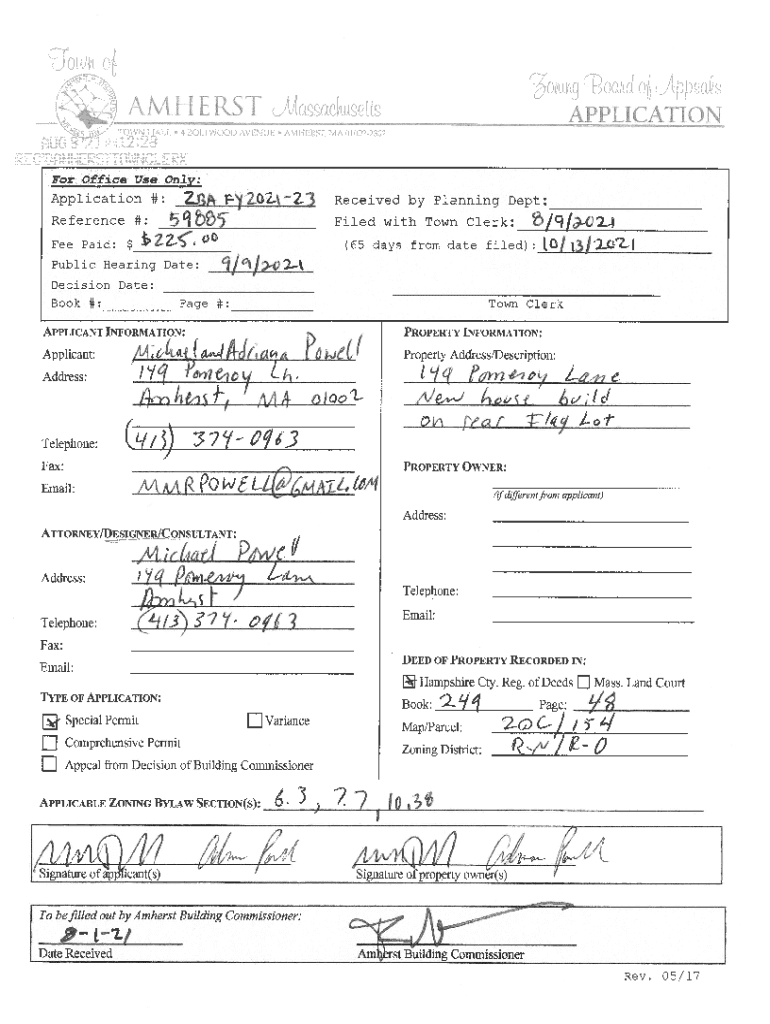 Town of
AMHERST Massachusetts
Zoning Board of Appeals
APPLICATION
TOWN HALL • 4 BOLTWOOD AVENUE • AMHERST, MA 01002-2302
For Office Use Only:
Application #: ZBA FY2021-23 Received by Planning Dept:
Reference #: 59885 Filed with Town Clerk: 8/9/2021
Fee Paid: $ $225.00 (65 days from date filed): 10/13/2021
Public Hearing Date: 9/9/2021
Decision Date:
Book #: Page #: Town Clerk
APPLICANT INFORMATION:
Applicant: Michael and Adriana Powell
Address: 149 Pomeroy Ln.
Amherst, MA 01002
Telephone: (413) 374-0963
Fax:
Email: MMRPOWELL@GMAIL.COM
ATTORNEY/DESIGNER/CONSULTANT:
Michael Powell
Address: 149 Pomeroy Lane
Amherst
Telephone: (413) 374-0963
Fax:
Email:
TYPE OF APPLICATION:
Special Permit Variance
Comprehensive Permit
Appeal from Decision of Building Commissioner
PROPERTY INFORMATION:
Property Address/Description:
149 Pomeroy Lane
New house build
on rear Flag Lot
PROPERTY OWNER:
(if different from applicant)
Address:
Telephone:
Email:
DEED OF PROPERTY RECORDED IN:
Hampshire Cty. Reg. of Deeds Mass. Land Court
Book: 249 Page: 48
Map/Parcel: 20C/154
Zoning District: R-N/R-O
APPLICABLE ZONING BYLAW SECTION(S): 6.3, 7.7, 10.38
Signature of applicant(s) Signature of property owner(s)
To be filled out by Amherst Building Commissioner:
8-1-21
Date Received Amherst Building Commissioner
Rev. 05/17